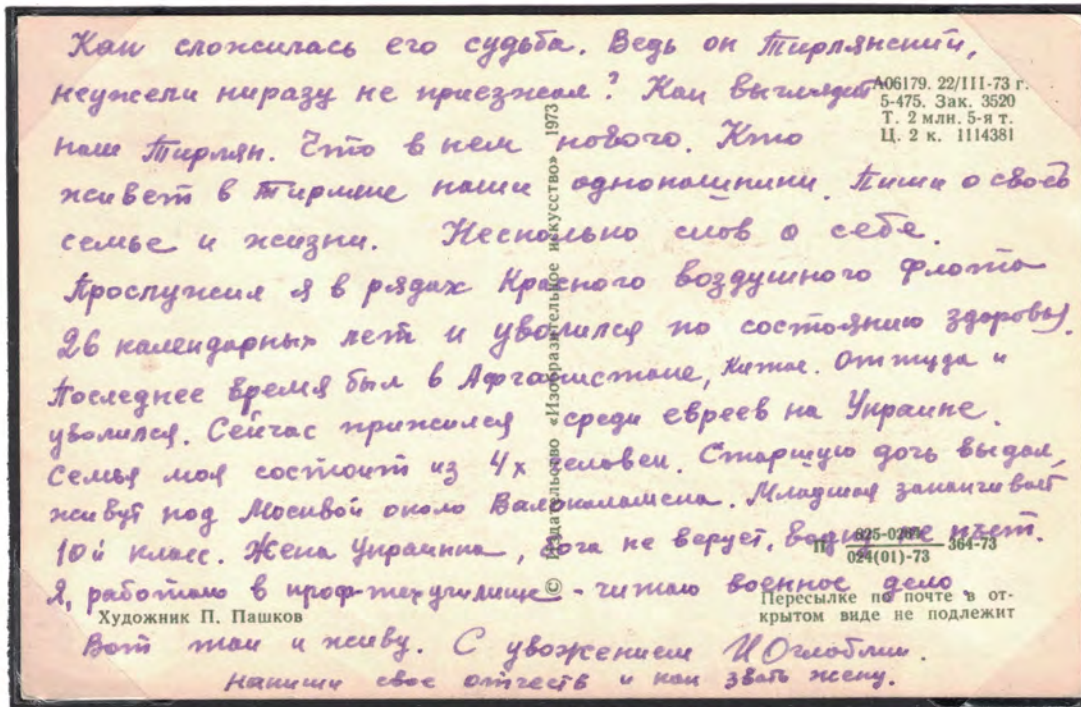 Как сложилась его судьба. Ведь он Тирлянский,
неужели ниразу не приезжал? Как выглядит
наш Тирлян. Что в нем нового. Кто
живет в Тирляне наши однокашники. Пиши о своей
семье и жизни. Несколько слов о себе.
Прослужил я в рядах Красного воздушного флота
26 календарных лет и уволился по состоянию здоровья.
Последнее время был в Афганистане, Китае. Оттуда и
уволился. Сейчас прижился среди евреев на Украине.
Семья моя состоит из 4х человек. Старшую дочь выдал,
живут под Москвой около Валокаламска. Младшая заканчивает
10й класс. Жена Украинка, бога не верует, водку не пьет.
Я, работаю в проф-техучилище - читаю военное дело.
Вот так и живу. С уважением И Оглоблин.
Напиши свое отчеств и как звать жену.
А06179. 22/III-73 г.
5-475. Зак. 3520
Т. 2 млн. 5-я т.
Ц. 2 к. 1114381
© Издательство «Изобразительное искусство» 1973
024(01)-73 364-73
Художник П. Пашков
Пересылке по почте в от-
крытом виде не подлежит